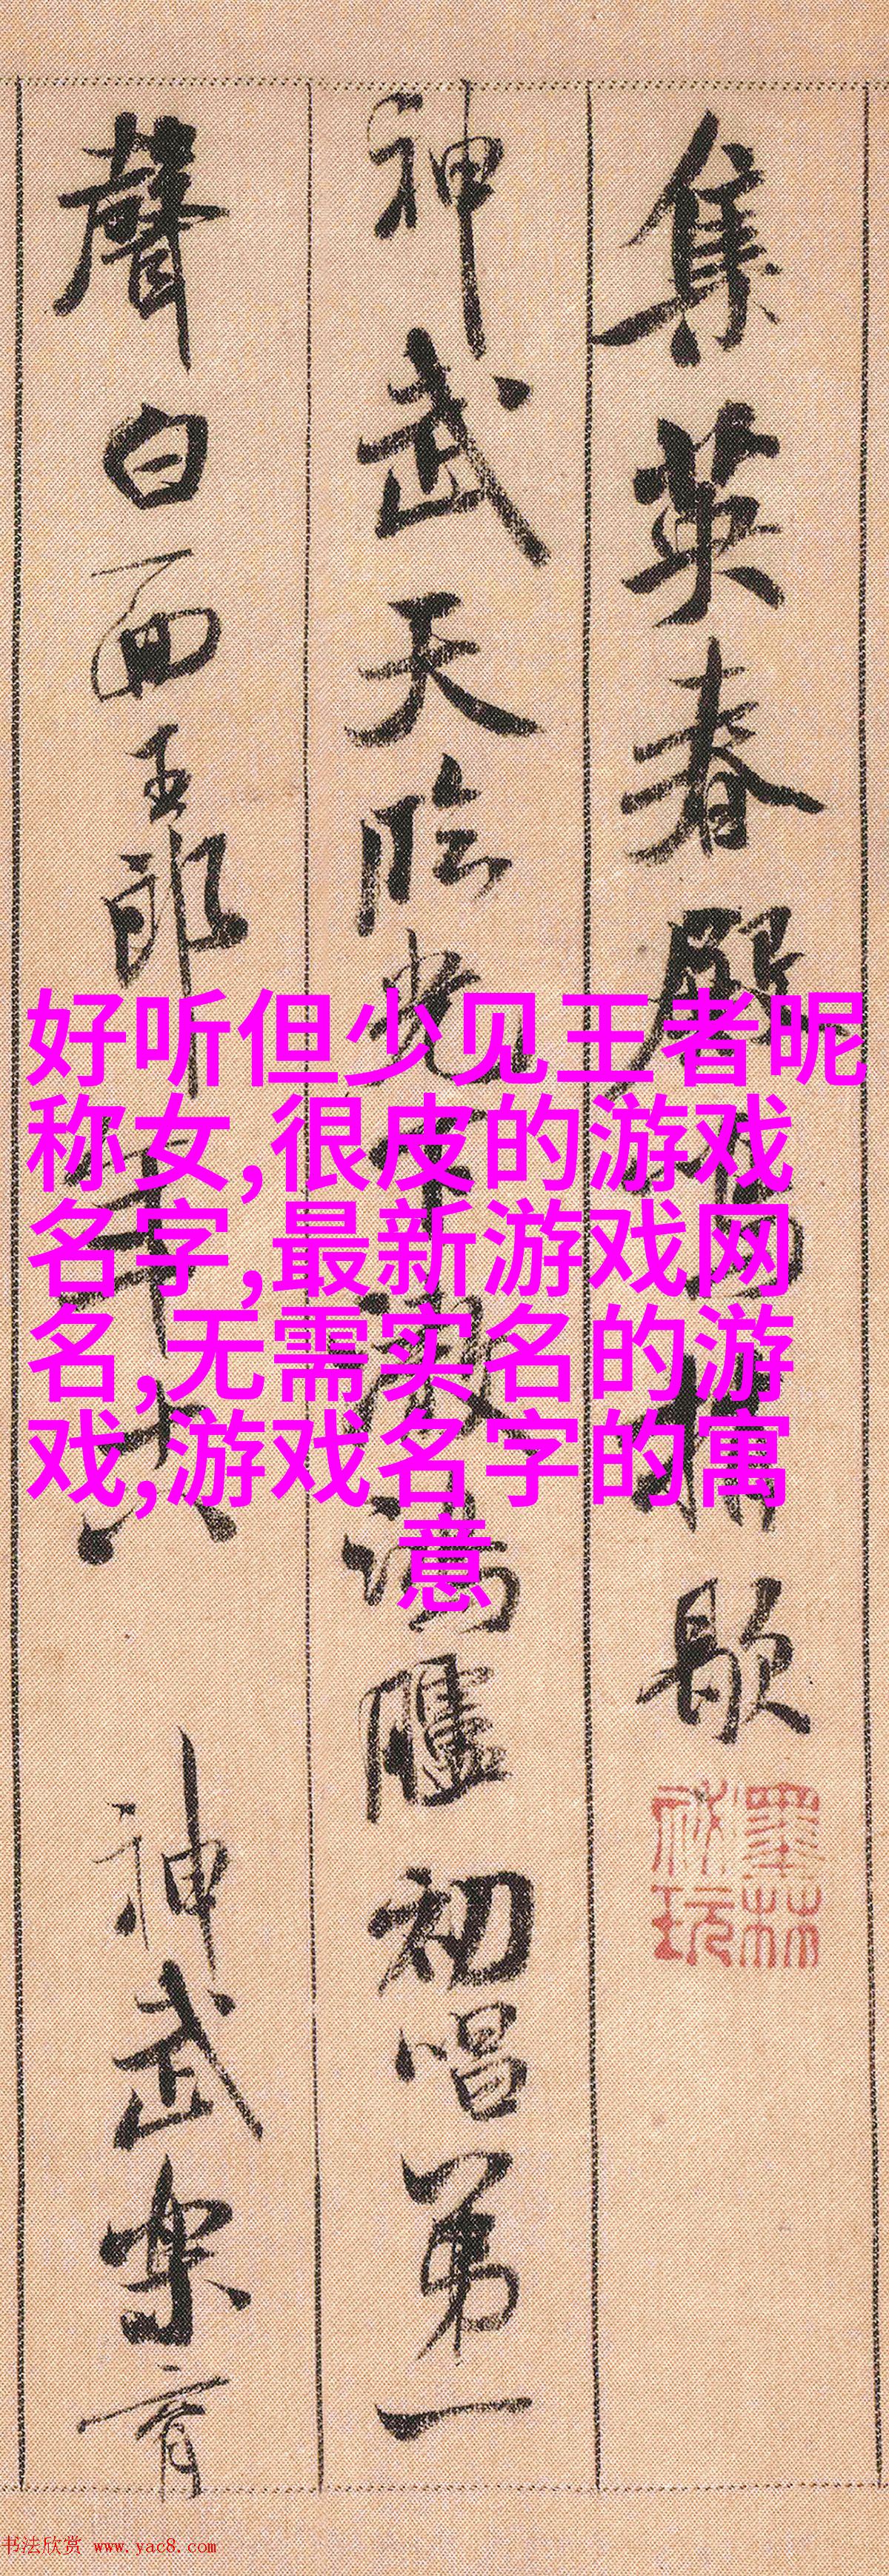 集英春殿鳴梢歇
神武天臨光下澈鴻臚初唱第一
聲白面王郎年十八 神武樂育
墨林
祕玩
好听但少见王者昵
称女,很皮的游戏
名字,最新游戏网
名,无需实名的游
戏,游戏名字的寓
意
书法欣赏 www.yac8.com